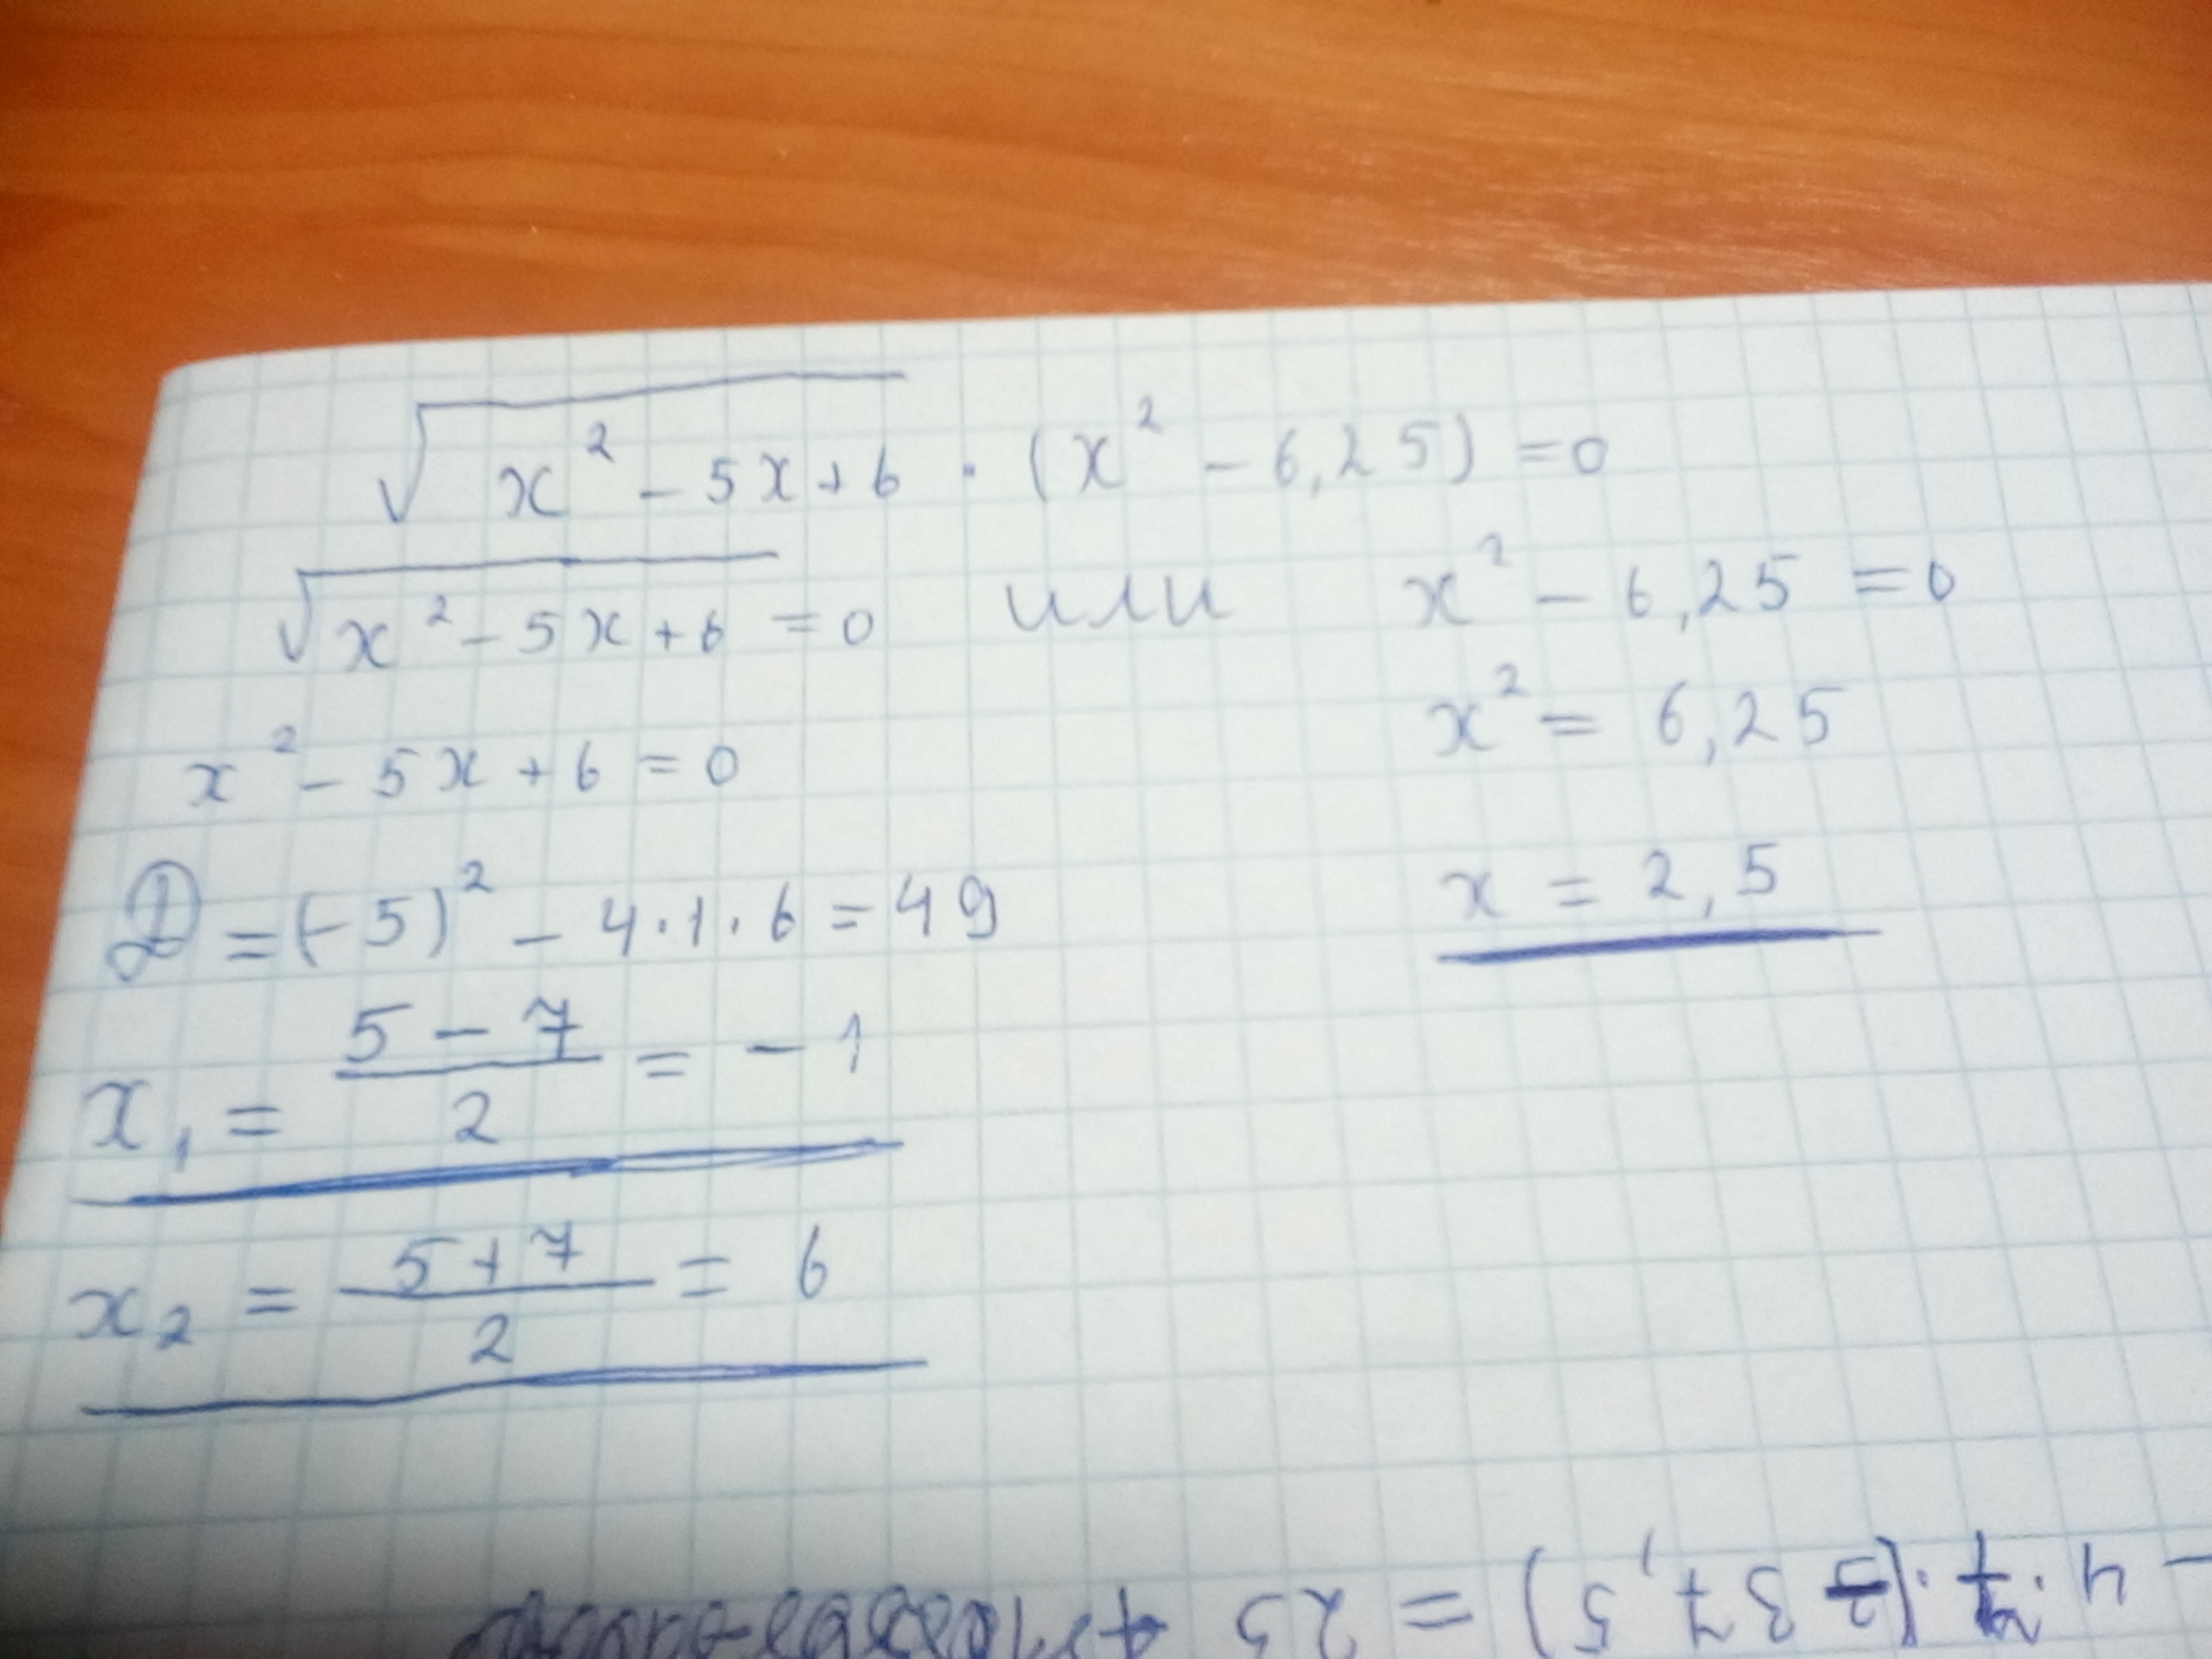 √(x² - 5x + 6) · (x² - 6,25) = 0
√(x² - 5x + 6) = 0 или x² - 6,25 = 0
x² = 6,25
x² - 5x + 6 = 0
x = 2,5
D = (-5)² - 4·1·6 = 49
x₁ = (5 - 7)/2 = -1
x₂ = (5 + 7)/2 = 6
37,5) = 25